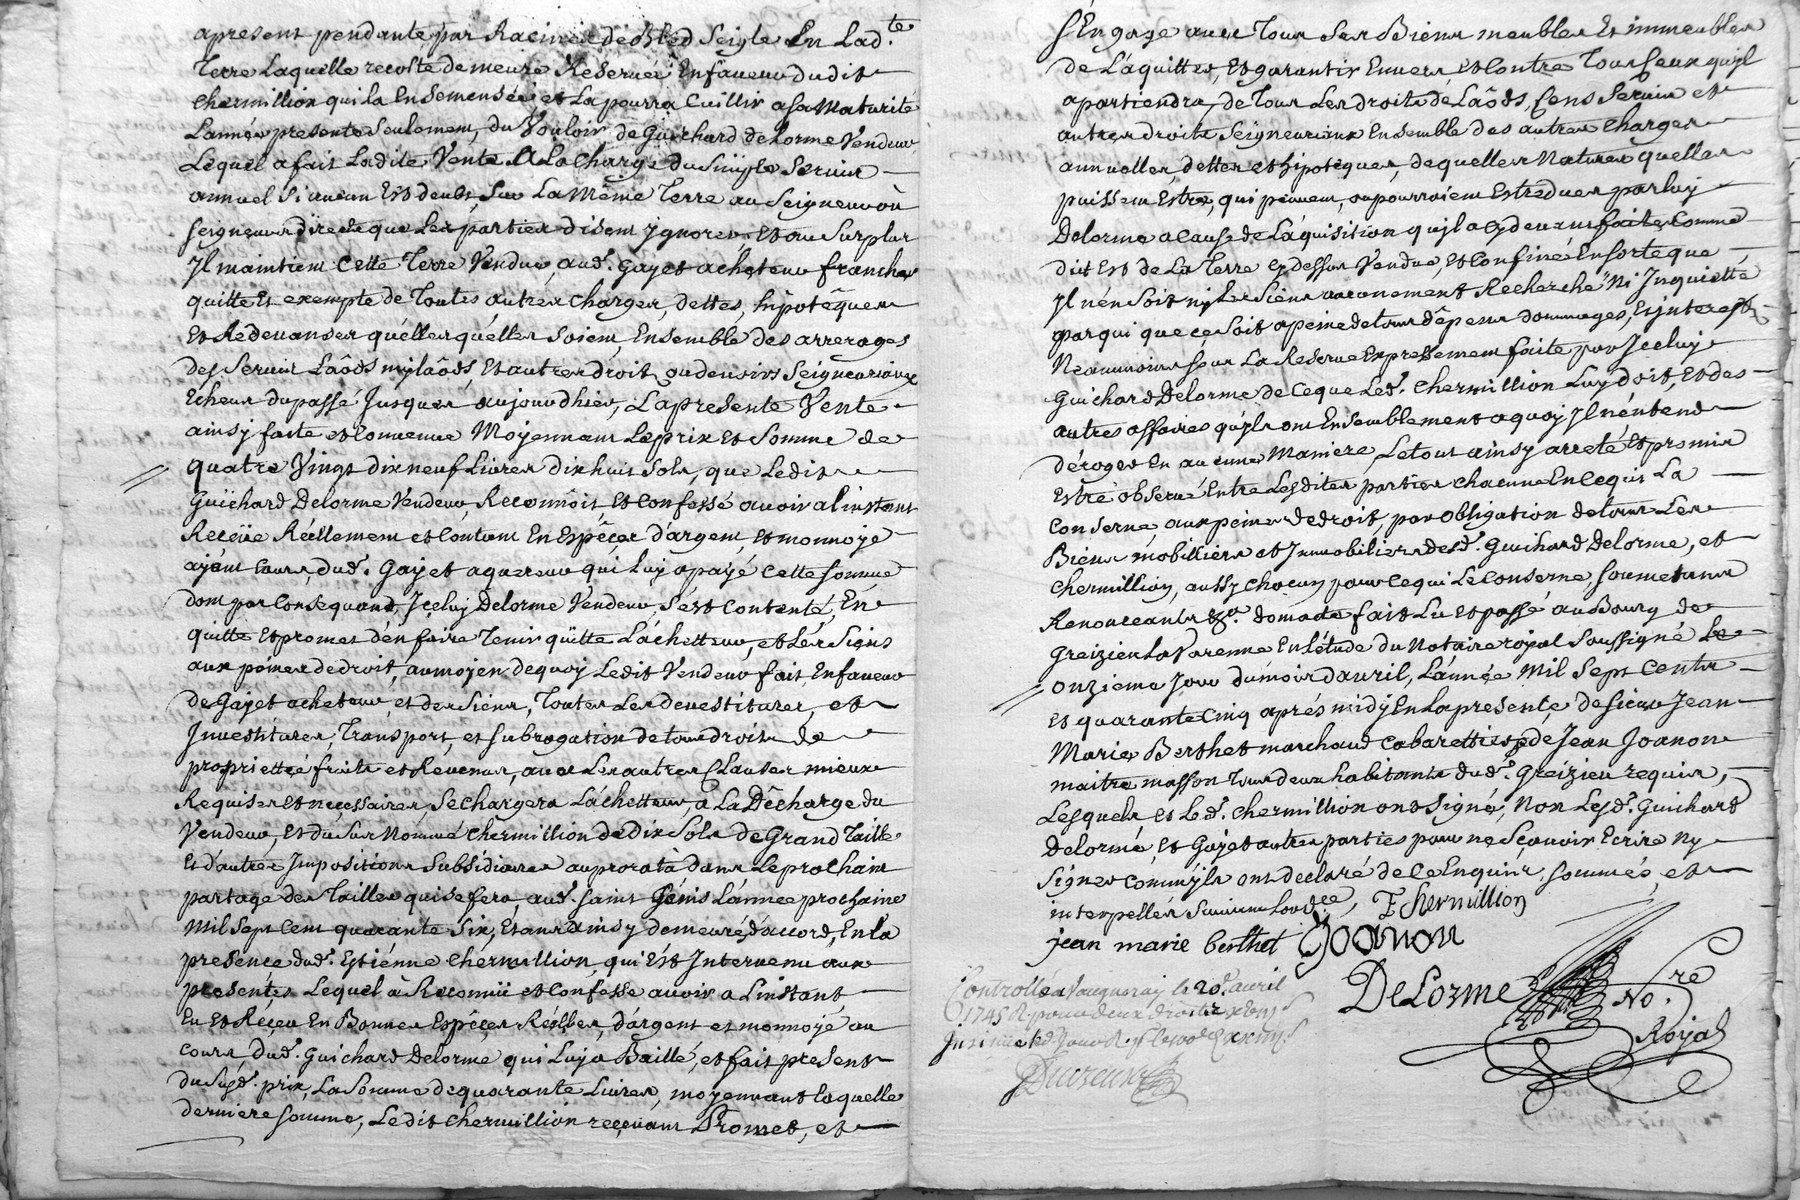 apresent pendante par Racines de Bled Seigle En Lad.te
Terre Laquelle recolte demeure Reservée En faveur dudit
chermillion qui la Ensemensée, et La pourra Cuillir asa Maturité
Lannée presente seulement, du Vouloir de Guichard delorme Vendeur
Lequel a fait Ladite Vente A La Charge du Simple Servis
annuel Si aucun Est deubt, Sur La Même Terre au Seigneur où
seigneurs directe que Les parties disent ygnorer Et au Surplus
Jl maintient Cette Terre Vendue, aud. Gayet acheteur franche
quitte Et exempte de Toutes autres Charges, dettes, hipotêques
Et Redevanses quélles quélles soient, Ensemble des arrerages
des Servis Laôds mylaôds, Et autres droits ou devoirs Seigneuriaux
Echeus du passé Jusques aujourdhier, La presente Vente
ainsy faite et Convenue Moyennant Le prix et Somme de
quatre Vingt dix neuf Livres dix huit Sols, que Ledit
Guichard Delorme Vendeur, Reconnôit Et Confessé avoir a l'instant
Receüe Réellement et Contant En Espêces d'argent, et monnoye
ayant Cours, dud. Gayet aquereur qui Luy a payé Cette Somme
dont par Consequand, Jceluy Delorme Vendeur, S'est Contenté, En
quitte et promet d'en faire Tenir qüitte Láchetteur, et Lés Siens
aux peines de droit, aumoyen dequoy Ledit Vendeur fait Enfaveur
de Gayet acheteur, et des Siens, Toutes Les devestitures, et
Jnvestitures, Transport, et subrogation de tous droits de
proprietté fruits et Revenus, avec Les autres Clauses mieux
Requises et necessaires, Se chargera Láchetteur, a La Décharge du
Vendeur, Et du Sus Nommé Chermillion de dix Sols de Grand Taille
Et d'autres Jmpositions Subsidiaires au prorata dans Le prochain
partage des Tailles qui se fera, aud. Saint Génis L'année prochaine
Mil Sept Cent quarante Six, Etant ainsy demeuré d'accord, En la
presence dud. Estiénne Chermillion, qui Est Jntervenu aux
presentes Lequel à Reconnü et Confesse avoir a Linstant
Eu et Reçeu En Bonnes Espêçes Réelles, d'argent et monnoye au
Cours dud. Guichard Delorme qui Luy a Baillé, et fait present
du Susd. prix, La Somme de quarante Livres, moyennant laquelle
derniere somme, Ledit Chermillion reçevant Promet, et
S'Engage avec Tous Ses Biens meubles Et immeubles
de L'aquitter, Et garantir Envers, et Contre Tous Ceux qu'yl
apartiendra, de Tous Les droits de Laôds, Cens Servis et
autres droits Seigneuriaux Ensemble des autres Charges
annuelles, dettes et hipoteques, de quelles Natures quelles
puissent Estre, qui peuvent, ou pourroient Estre dues par luy
Delorme a Cause de L'aquisition qu'jl a Cy devant faites Comme
dit Est de La Terre Cy dessus Vendue, et Confinée Ensorte que
Jl n'en Soit ny Les Siens aucunement Recherché Ni Jnquietté
par qui que ce soit apeine de tous dêpens dommages, Et jnterests
Neanmoins sous La Reserve Expressement faite par Jceluy
Guichard Delorme de Ce que Led. Chermillion Luy doit, Et des
autres affaires qu'jls ont Ensemblement aquoy Jl n'éntend
déroger En aucune Maniere, Le tout ainsy arreté Et promis
Estre observé Entre Lesdites parties Chacune En Ce qui La
Conserne aux peines de droit, par obligation de tous Les
Biens mobilliers et Jmmobiliers desd. Guichard Delorme, et
Chermillion, aussy Chacun pour Ce qui Le Conserne, soumetans
Renonceants &.a dont acte fait Lu et passé au Bourg de
Greizieu La Varenne En L'étude du Notaire royal Soussigné Le
onzieme Jour du mois d'avril, L'année Mil Sept Cents
Et quarante Cinq aprés midy En la presente de Sieur Jean
Marie Berthet marchand Cabarettier, & de Jean Joanon
maitre masson Tous deux habitants dud. Greizieu requis,
Lesquels et Led. Chermillion ont Signé, Non Lesd. Guichard
Delorme, Et Gayet autres parties pour ne Sçavoir Ecrire Ny
Signer Comm'yls ont declaré de Ce Enquis, sommés, et
interpellés Suivant Lord.ce, E Chermillion
jean marie berthet Joanon
DeLorme No.re
Royal
Controllé a Vaugneray le 20.e avril
1745 R pour deux droits